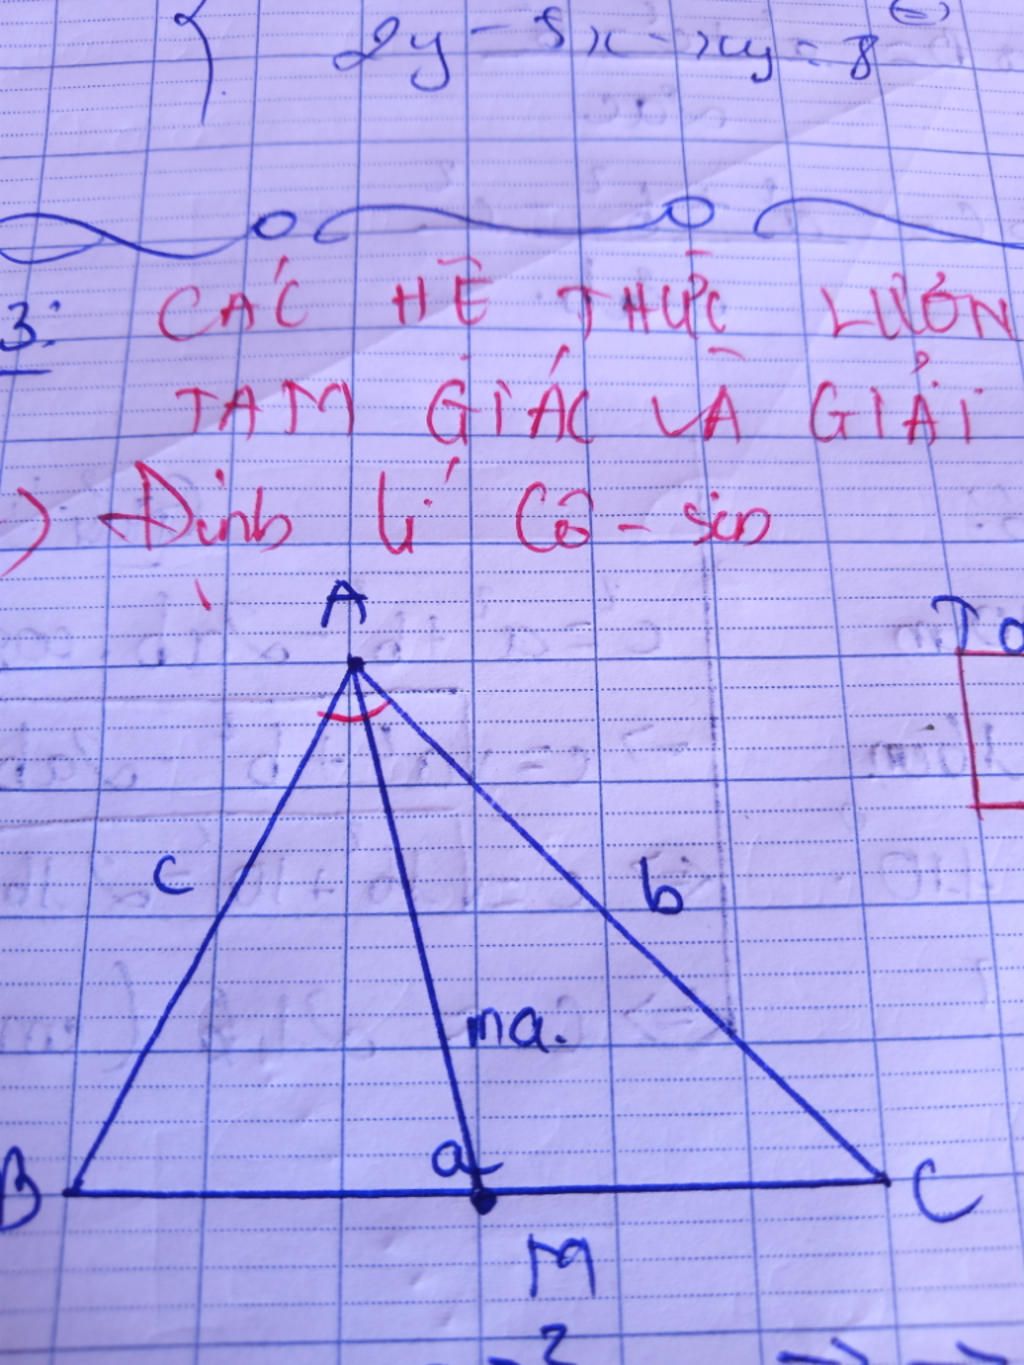 2y - 5x - xy = 8
3: CÁC HỆ THỨC LƯỢN
TAM GIÁC VÀ GIẢI
) Định lí Cô-sin
A
To
c
b
ma.
a
B
C
M
2